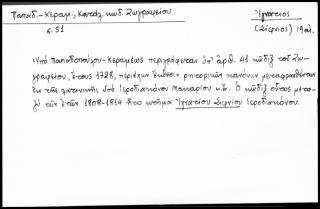 Παπαδ.-Κεραμ., Κατάλ. κωδ. Ζωγραφείου
σ. 51
Ἰγνάτιος
(Σίφνιος) 19αι.
Ὑπὸ Παπαδοπούλου-Κεραμέως περιγράφεται ὑπ' ἀριθ. 41 κῶδιξ τοῦ Ζω-
γραφείου, ἔτους 1728, περιέχων ἔκθεσιν ρητορικῶν κανόνων μεταφρασθέντων
ἐκ τῆς λατινικῆς ὑπὸ Ἱεροδιακόνου Μακαρίου κ.ἄ. Ὁ κῶδιξ οὗτος μετα-
ξὺ τῶν ἐτῶν 1808-1814 ἦτο κτῆμα Ἰγνατίου Σιφνίου Ἱεροδιακόνου.